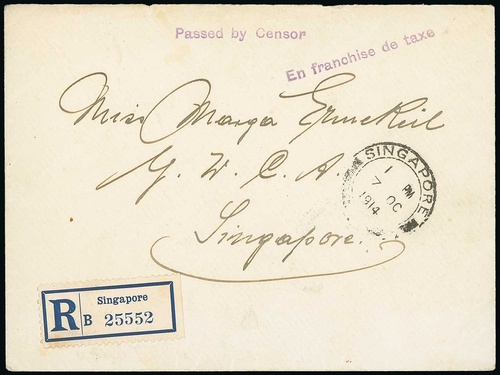 Passed by Censor
En franchise de taxe
Miss Marga
Y. W. C. A.
Singapore.
SINGAPORE
1 PM
7 OC
1914
R
Singapore
B 25552